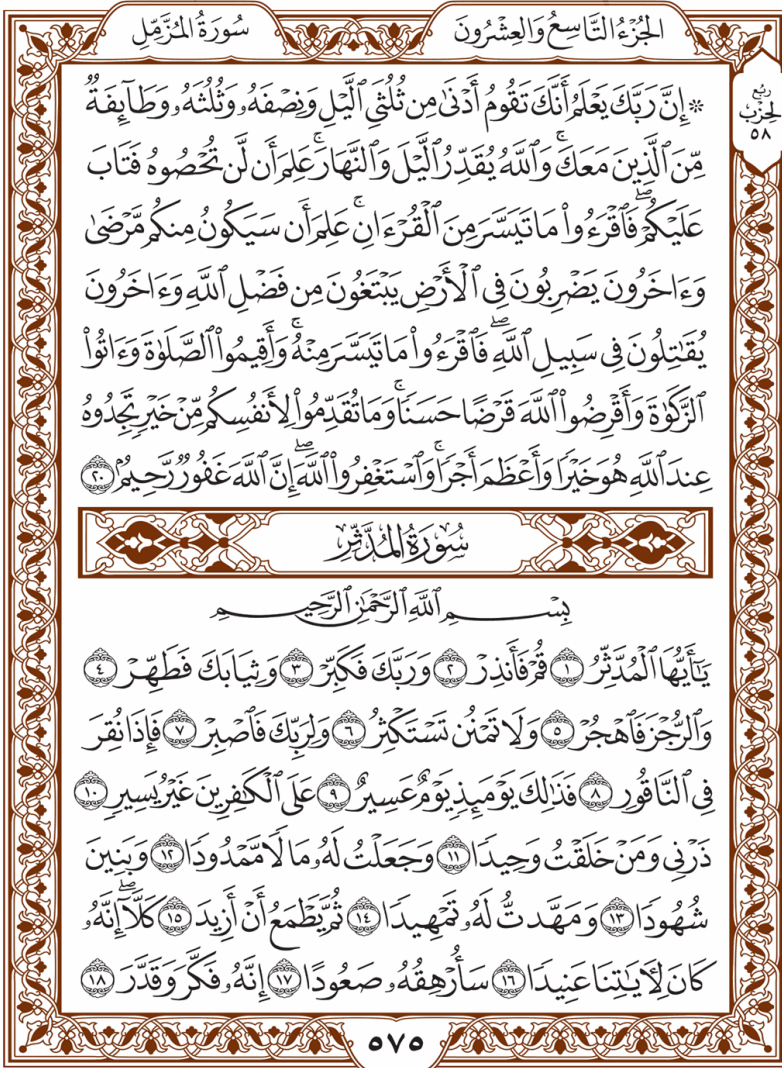 سُورَةُ المُزَّمِّلِ
الجُزْءُ التَّاسِعُ وَالعِشْرُونَ
ربع
الحزب
٥٨
۞ إِنَّ رَبَّكَ يَعْلَمُ أَنَّكَ تَقُومُ أَدْنَىٰ مِن ثُلُثَيِ ٱلَّيْلِ وَنِصْفَهُۥ وَثُلُثَهُۥ وَطَآئِفَةٌ
مِّنَ ٱلَّذِينَ مَعَكَۚ وَٱللَّهُ يُقَدِّرُ ٱلَّيْلَ وَٱلنَّهَارَۚ عَلِمَ أَن لَّن تُحْصُوهُ فَتَابَ
عَلَيْكُمْۖ فَٱقْرَءُوا۟ مَا تَيَسَّرَ مِنَ ٱلْقُرْءَانِۚ عَلِمَ أَن سَيَكُونُ مِنكُم مَّرْضَىٰ
وَءَاخَرُونَ يَضْرِبُونَ فِى ٱلْأَرْضِ يَبْتَغُونَ مِن فَضْلِ ٱللَّهِ وَءَاخَرُونَ
يُقَٰتِلُونَ فِى سَبِيلِ ٱللَّهِۖ فَٱقْرَءُوا۟ مَا تَيَسَّرَ مِنْهُۚ وَأَقِيمُوا۟ ٱلصَّلَوٰةَ وَءَاتُوا۟
ٱلزَّكَوٰةَ وَأَقْرِضُوا۟ ٱللَّهَ قَرْضًا حَسَنًاۚ وَمَا تُقَدِّمُوا۟ لِأَنفُسِكُم مِّنْ خَيْرٍ تَجِدُوهُ
عِندَ ٱللَّهِ هُوَ خَيْرًا وَأَعْظَمَ أَجْرًاۚ وَٱسْتَغْفِرُوا۟ ٱللَّهَۖ إِنَّ ٱللَّهَ غَفُورٌ رَّحِيمٌۢ ٢٠
سُورَةُ المُدَّثِّرِ
بِسْمِ ٱللَّهِ ٱلرَّحْمَٰنِ ٱلرَّحِيمِ
يَٰٓأَيُّهَا ٱلْمُدَّثِّرُ ١ قُمْ فَأَنذِرْ ٢ وَرَبَّكَ فَكَبِّرْ ٣ وَثِيَابَكَ فَطَهِّرْ ٤
وَٱلرُّجْزَ فَٱهْجُرْ ٥ وَلَا تَمْنُن تَسْتَكْثِرُ ٦ وَلِرَبِّكَ فَٱصْبِرْ ٧ فَإِذَا نُقِرَ
فِى ٱلنَّاقُورِ ٨ فَذَٰلِكَ يَوْمَئِذٍ يَوْمٌ عَسِيرٌ ٩ عَلَى ٱلْكَٰفِرِينَ غَيْرُ يَسِيرٍ ١٠
ذَرْنِى وَمَنْ خَلَقْتُ وَحِيدًا ١١ وَجَعَلْتُ لَهُۥ مَالًا مَّمْدُودًا ١٢ وَبَنِينَ
شُهُودًا ١٣ وَمَهَّدتُّ لَهُۥ تَمْهِيدًا ١٤ ثُمَّ يَطْمَعُ أَنْ أَزِيدَ ١٥ كَلَّآۖ إِنَّهُۥ
كَانَ لِءَايَٰتِنَا عَنِيدًا ١٦ سَأُرْهِقُهُۥ صَعُودًا ١٧ إِنَّهُۥ فَكَّرَ وَقَدَّرَ ١٨
٥٧٥